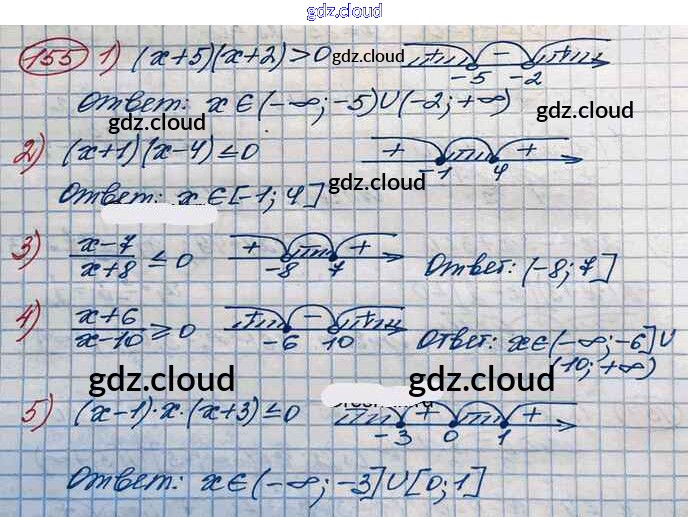 gdz.cloud
155 1) (x+5)(x+2)>0 gdz.cloud + - + -5 -2
Ответ: x∈(-∞; -5)∪(-2; +∞)
gdz.cloud gdz.cloud
2) (x+1)(x-4)≤0 + + -1 4
gdz.cloud
Ответ: x∈[-1; 4]
3) x-7/x+8 ≤ 0 + + -8 7 Ответ: (-8; 7]
4) x+6/x-10 ≥ 0 + - + -6 10 Ответ: x∈(-∞; -6]∪
(10; +∞)
gdz.cloud gdz.cloud
5) (x-1)·x·(x+3)≤0 + + -3 0 1
Ответ: x∈(-∞; -3]∪[0; 1]